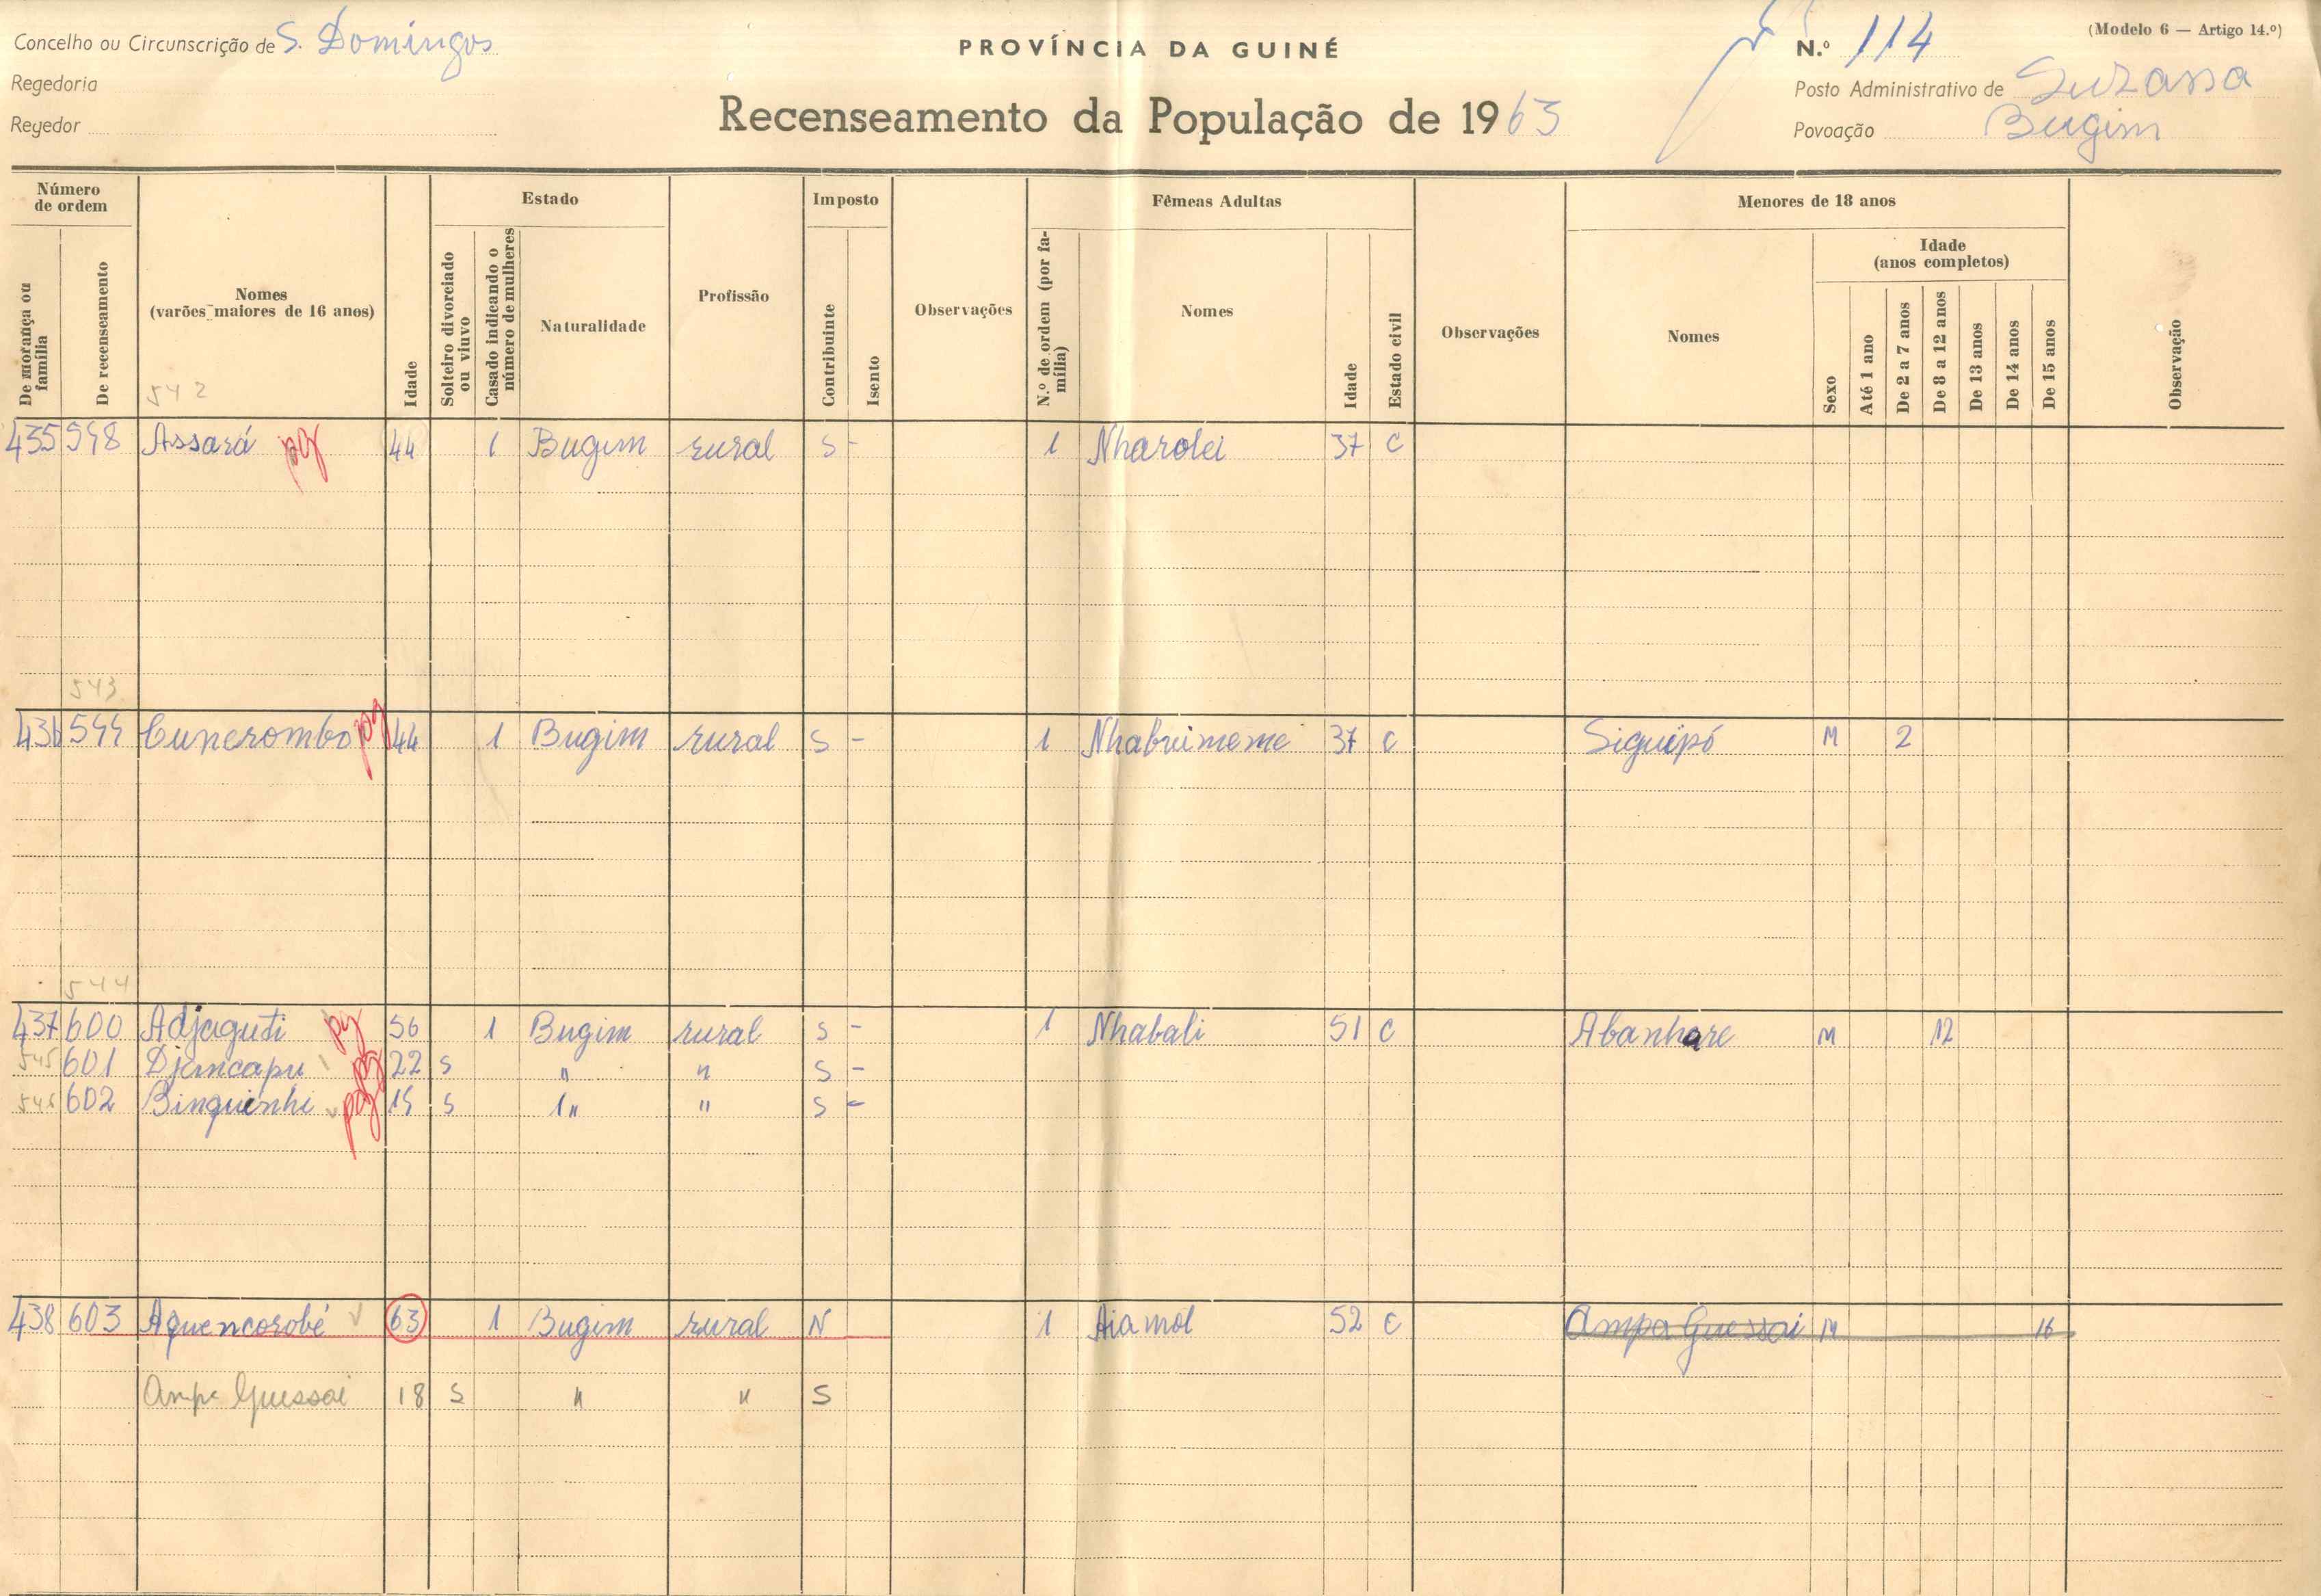 Concelho ou Circunscrição de S. Domingos
PROVÍNCIA DA GUINÉ
N.º 114
(Modelo 6 — Artigo 14.º)
Regedoria
Posto Administrativo de Suzana
Regedor
Recenseamento da População de 1963
Povoação Bugim
Número de ordem
Estado
Imposto
Fêmeas Adultas
Menores de 18 anos
De morança ou família
De recenseamento
Nomes (varões maiores de 16 anos)
Idade
Solteiro divorciado ou viuvo
Casado indicando o número de mulheres
Naturalidade
Profissão
Contribuinte
Isento
Observações
N.º de ordem (por família)
Nomes
Idade
Estado civil
Observações
Nomes
Sexo
Idade (anos completos)
Até 1 ano
De 2 a 7 anos
De 8 a 12 anos
De 13 anos
De 14 anos
De 15 anos
Observação
542
435 598 Assará pg 44 1 Bugim rural S - 1 Nharolei 37 C
543
436 599 Cunerombo pg 44 1 Bugim rural S - 1 Nhabuimeme 37 C Siguipó M 2
544
437 600 Adjaguti pg 56 1 Bugim rural S - 1 Nhabali 51 C Abanhare M 12
545 601 Djancapu pg 22 S " " S -
546 602 Binquinhi pg 19 S " " S -
438 603 Aquencorobé 63 1 Bugim rural N 1 Aiamol 52 C Ampa Guessai M 16
Ampa Guessai 18 S " " S